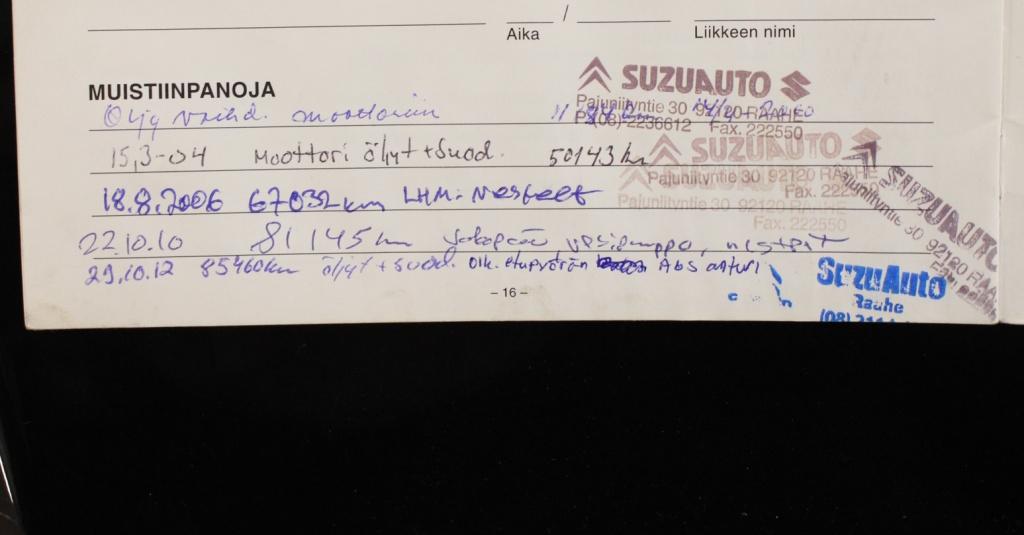 /
Aika Liikkeen nimi
MUISTIINPANOJA
SUZUAUTO
Öljy vaihd. moottoriin
Pajuniityntie 30 92120 RAAHE
P. (08) 2236612 Fax. 222550
15,3-04 Moottori öljyt + Suod. 50143 km
SUZUAUTO
Pajuniityntie 30 92120 RAAHE
Fax. 222550
18.8.2006 67032 km LHM-Nesteet
Pajuniityntie 30 92120 RAAHE
Fax. 222550
SUZUAUTO
Pajuniityntie 30 92120 RAAHE
22.10.10 81145 km Jakopää, vesipumppu, nesteet
29.10.12 85460 km öljyt + suod. Oik. etupyörän ABS anturi
SuzuAuto
Raahe
(08)
– 16 –